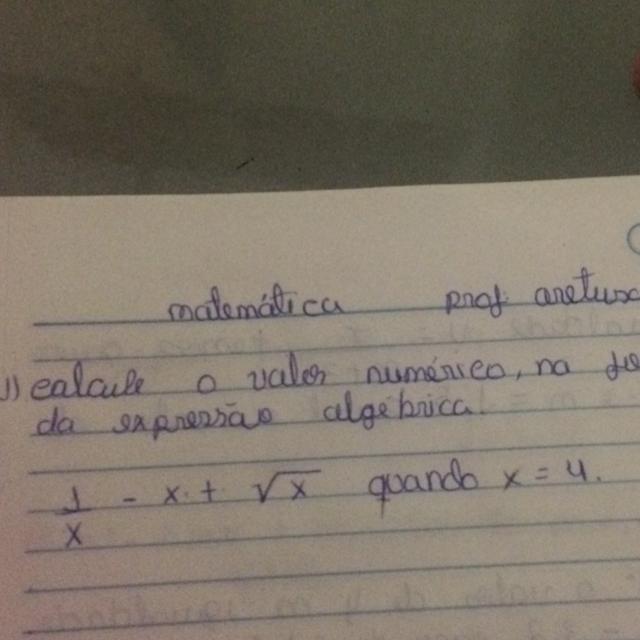 matemática prof aretusa
1) calcule o valor numérico, na
da expressão algébrica.
1/x - x + √x quando x = 4.